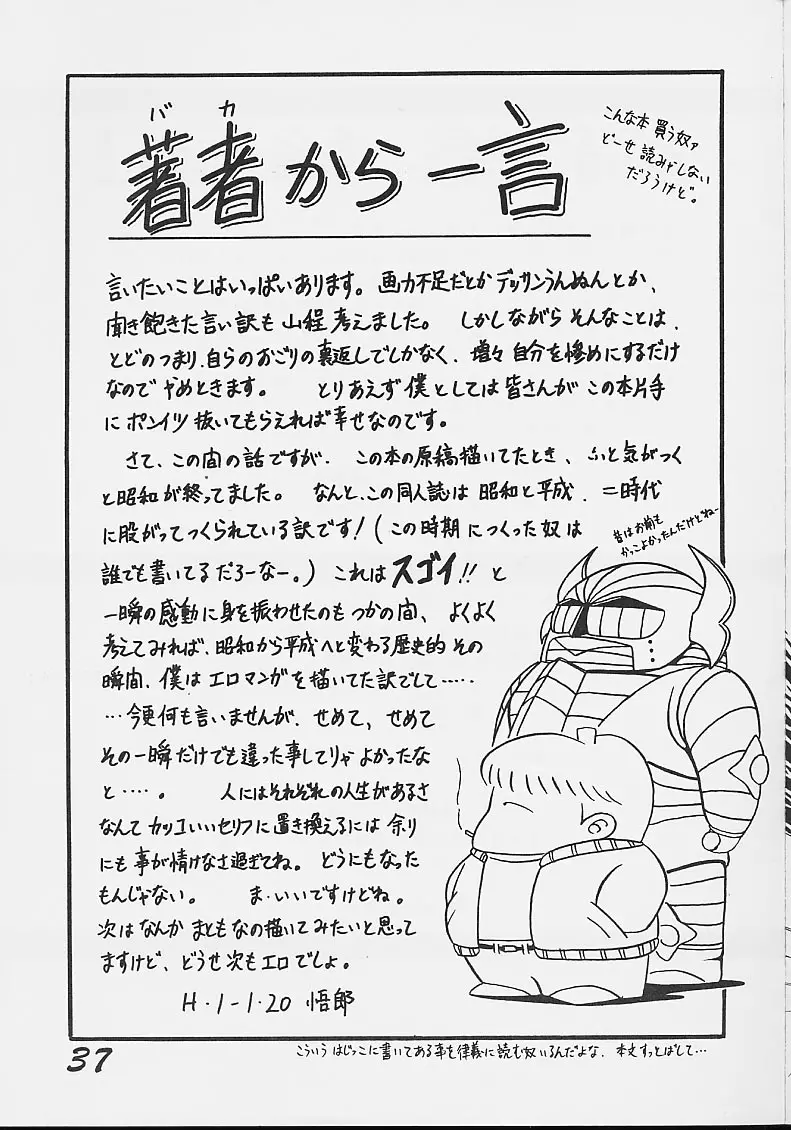 バカ
著者から一言
こんな本 買う奴ァ
どーせ 読みゃしない
だろうけど。
言いたいことはいっぱいあります。画力不足だとか デッサンうんぬんとか、
聞き飽きた言い訳も 山程 考えました。 しかしながら そんなことは、
とどのつまり、自らのおごりの裏返しでしかなく、増々 自分を惨めにするだけ
なので やめときます。 とりあえず 僕としては皆さんが この本片手
に ポンイツ 抜いてもらえれば幸せなのです。
さて、この間の話ですが、この本の原稿描いてたとき、ふと気がつく
と昭和が終ってました。 なんと、この同人誌は 昭和と平成、二時代
に股がってつくられている訳です!(この時期につくった奴は
誰でも書いてるだろーなー。)これは スゴイ!! と
一瞬の感動に身を振わせたのも つかの間、よくよく
考えてみれば、昭和から平成へと変わる歴史的 その
瞬間、僕は エロマンガを描いてた訳でして……
…今更何も言いませんが、せめて、せめて
その一瞬だけでも違った事してりゃ よかったな
と……。 人にはそれぞれの人生があるさ
なんて カッコいいセリフに置き換えるには 余り
にも 事が情けなさ過ぎてね。どうにもなった
もんじゃない。 ま・いいですけどね。
次はなんか まともなの描いてみたいと思って
ますけど、どうせ次もエロでしょ。
H・1-1・20 悟郎
昔はお前も
かっこよかったんだけどねー
37
こういう はじっこに書いてある事を律義に読む奴いるんだよな、本文すっとばして…